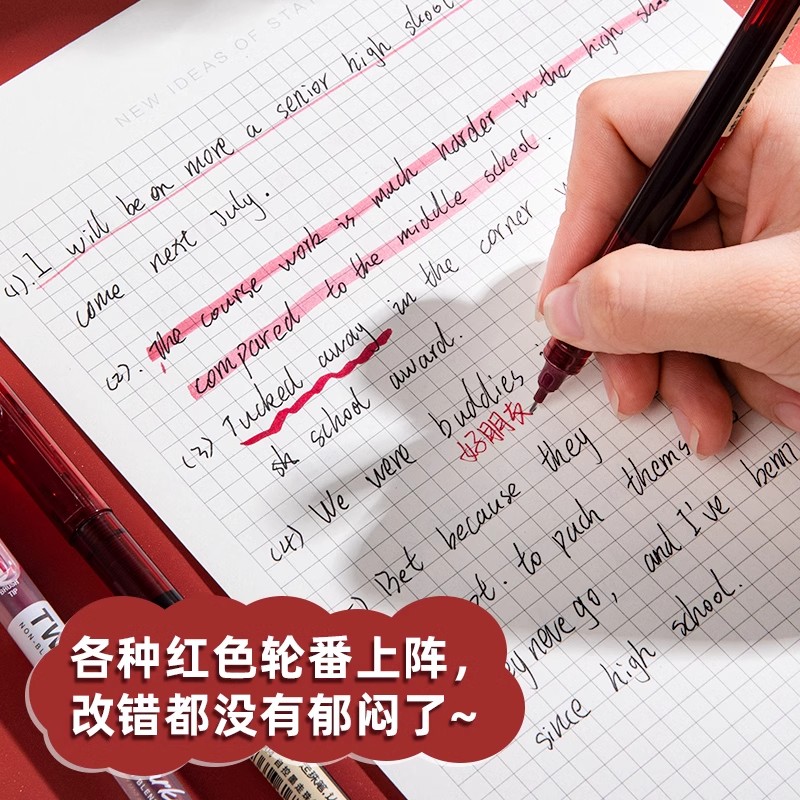 NEW IDEAS OF
(1). I will be on more a senior high skool
come next July.
(2). The course work is much harder in the high
compared to the middle school.
(3) Tucked away in the corner
sh school award.
(4) We were buddies
好朋友
Bet because they
to puch thems
never go, and I've benn
since high school.
BRUSH TIP
TW
NON-BL
各种红色轮番上阵，
改错都没有郁闷了~